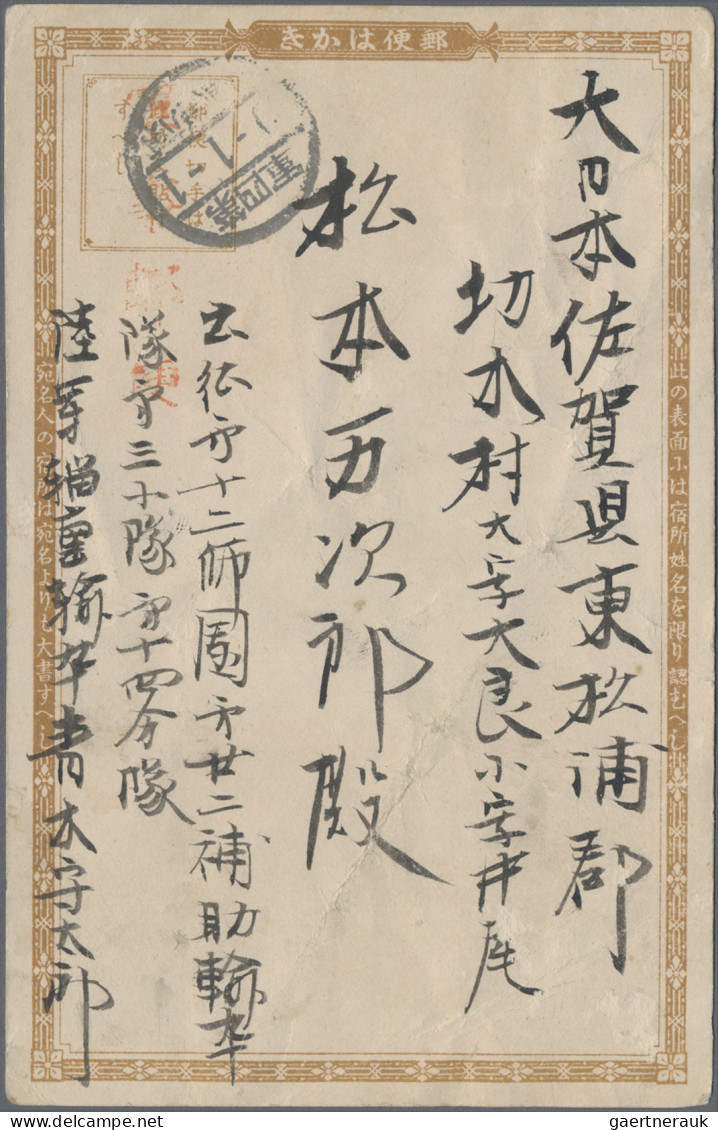 郵便はかき
此の表面には宿所姓名を限り認むへし
大日本佐賀県東松浦郡
切木村大字大良小字井尾
松本万次郎殿
出征第十二師団第廿二補助輸卒
隊第三小隊第十四分隊
陸軍輜重輸卒青木守太郎
宛名人の宿所は宛名よりも大書すへ
軍事郵便
gaertnerauk